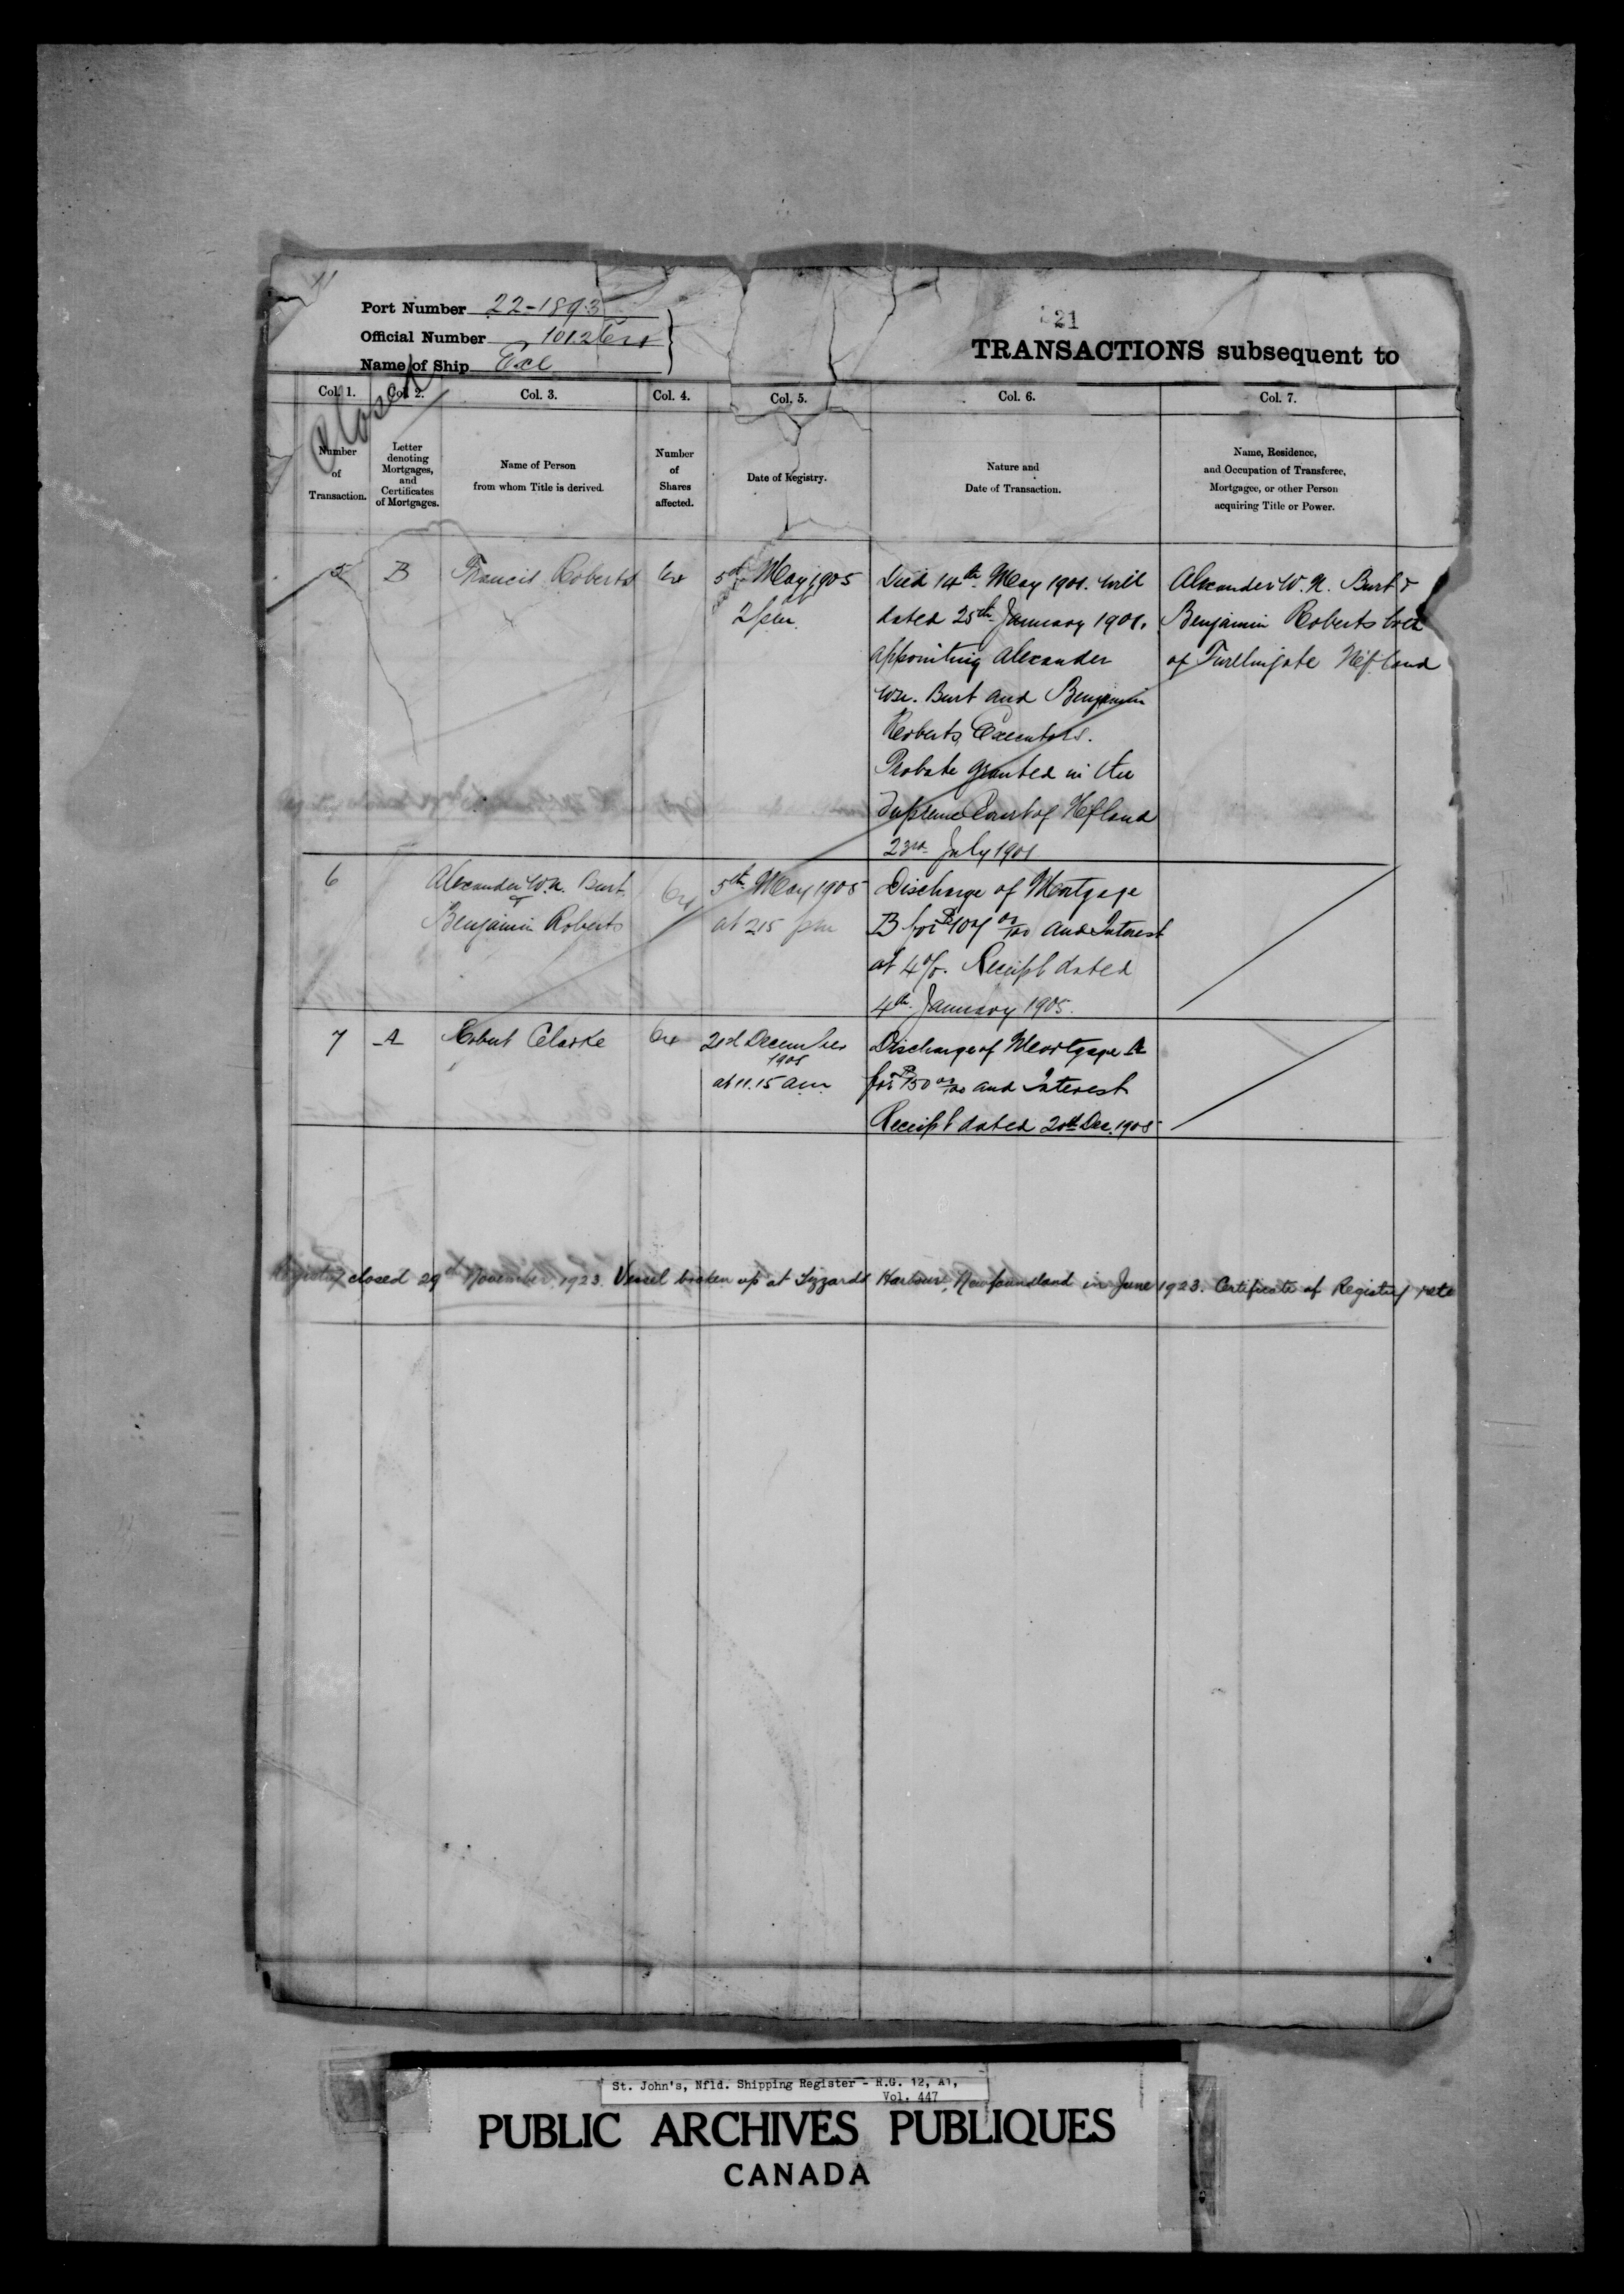 Port Number 22-1893
Official Number
Name of Ship
Closed
21
TRANSACTIONS subsequent to
Col. 1. Col. 2. Col. 3. Col. 4. Col. 5. Col. 6. Col. 7.
Number of Transaction.
Letter denoting Mortgages, and Certificates of Mortgages.
Name of Person from whom Title is derived.
Number of Shares affected.
Date of Registry.
Nature and Date of Transaction.
Name, Residence, and Occupation of Transferee, Mortgagee, or other Person acquiring Title or Power.
5 B Francis Roberts 64
5th May 1905
2 pm
Died 14th May 1901. Will
dated 25th January 1901.
appointing Alexander
Wm. Burt and Benjamin
Roberts, Executors.
Probate granted in the
Supreme Court of Nfland
23rd July 1901
Alexander W. N. Burt &
Benjamin Roberts both
of Twillingate Nfland
6
Alexander W. N. Burt
&
Benjamin Roberts
64
5th May 1905
at 2.15 pm
Discharge of Mortgage
B for and Interest
at 4%. Receipt dated
4th January 1905.
7 A Robert Clarke 64
21st December
1905
at 11.15 am
Discharge of Mortgage A
for $150 00/100 and Interest
Receipt dated 20th Dec. 1905
Registry closed 29th November, 1923. Vessel broken up at Tizzards Harbour, Newfoundland in June 1923. Certificate of Registry
St. John's, Nfld. Shipping Register - R.G. 12, A1,
Vol. 447
PUBLIC ARCHIVES PUBLIQUES
CANADA